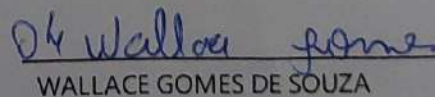 04 Wallace Gomes
WALLACE GOMES DE SOUZA